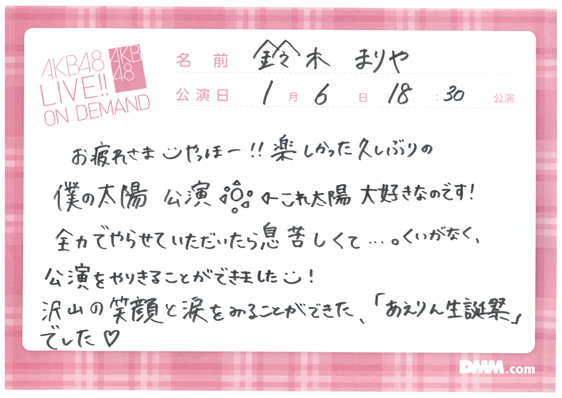 AKB48
LIVE!!
ON DEMAND
AKB
48
名前 鈴木 まりや
公演日 1月6日 18:30 公演
お疲れさま やっほー!!楽しかった久しぶりの
僕の太陽 公演 ←これ太陽 大好きなのです!
全力でやらせていただいたら息苦しくて…。くいがなく、
公演をやりきることができました!
沢山の笑顔と涙をみることができた、「あえりん生誕祭」
でした♡
DMM.com